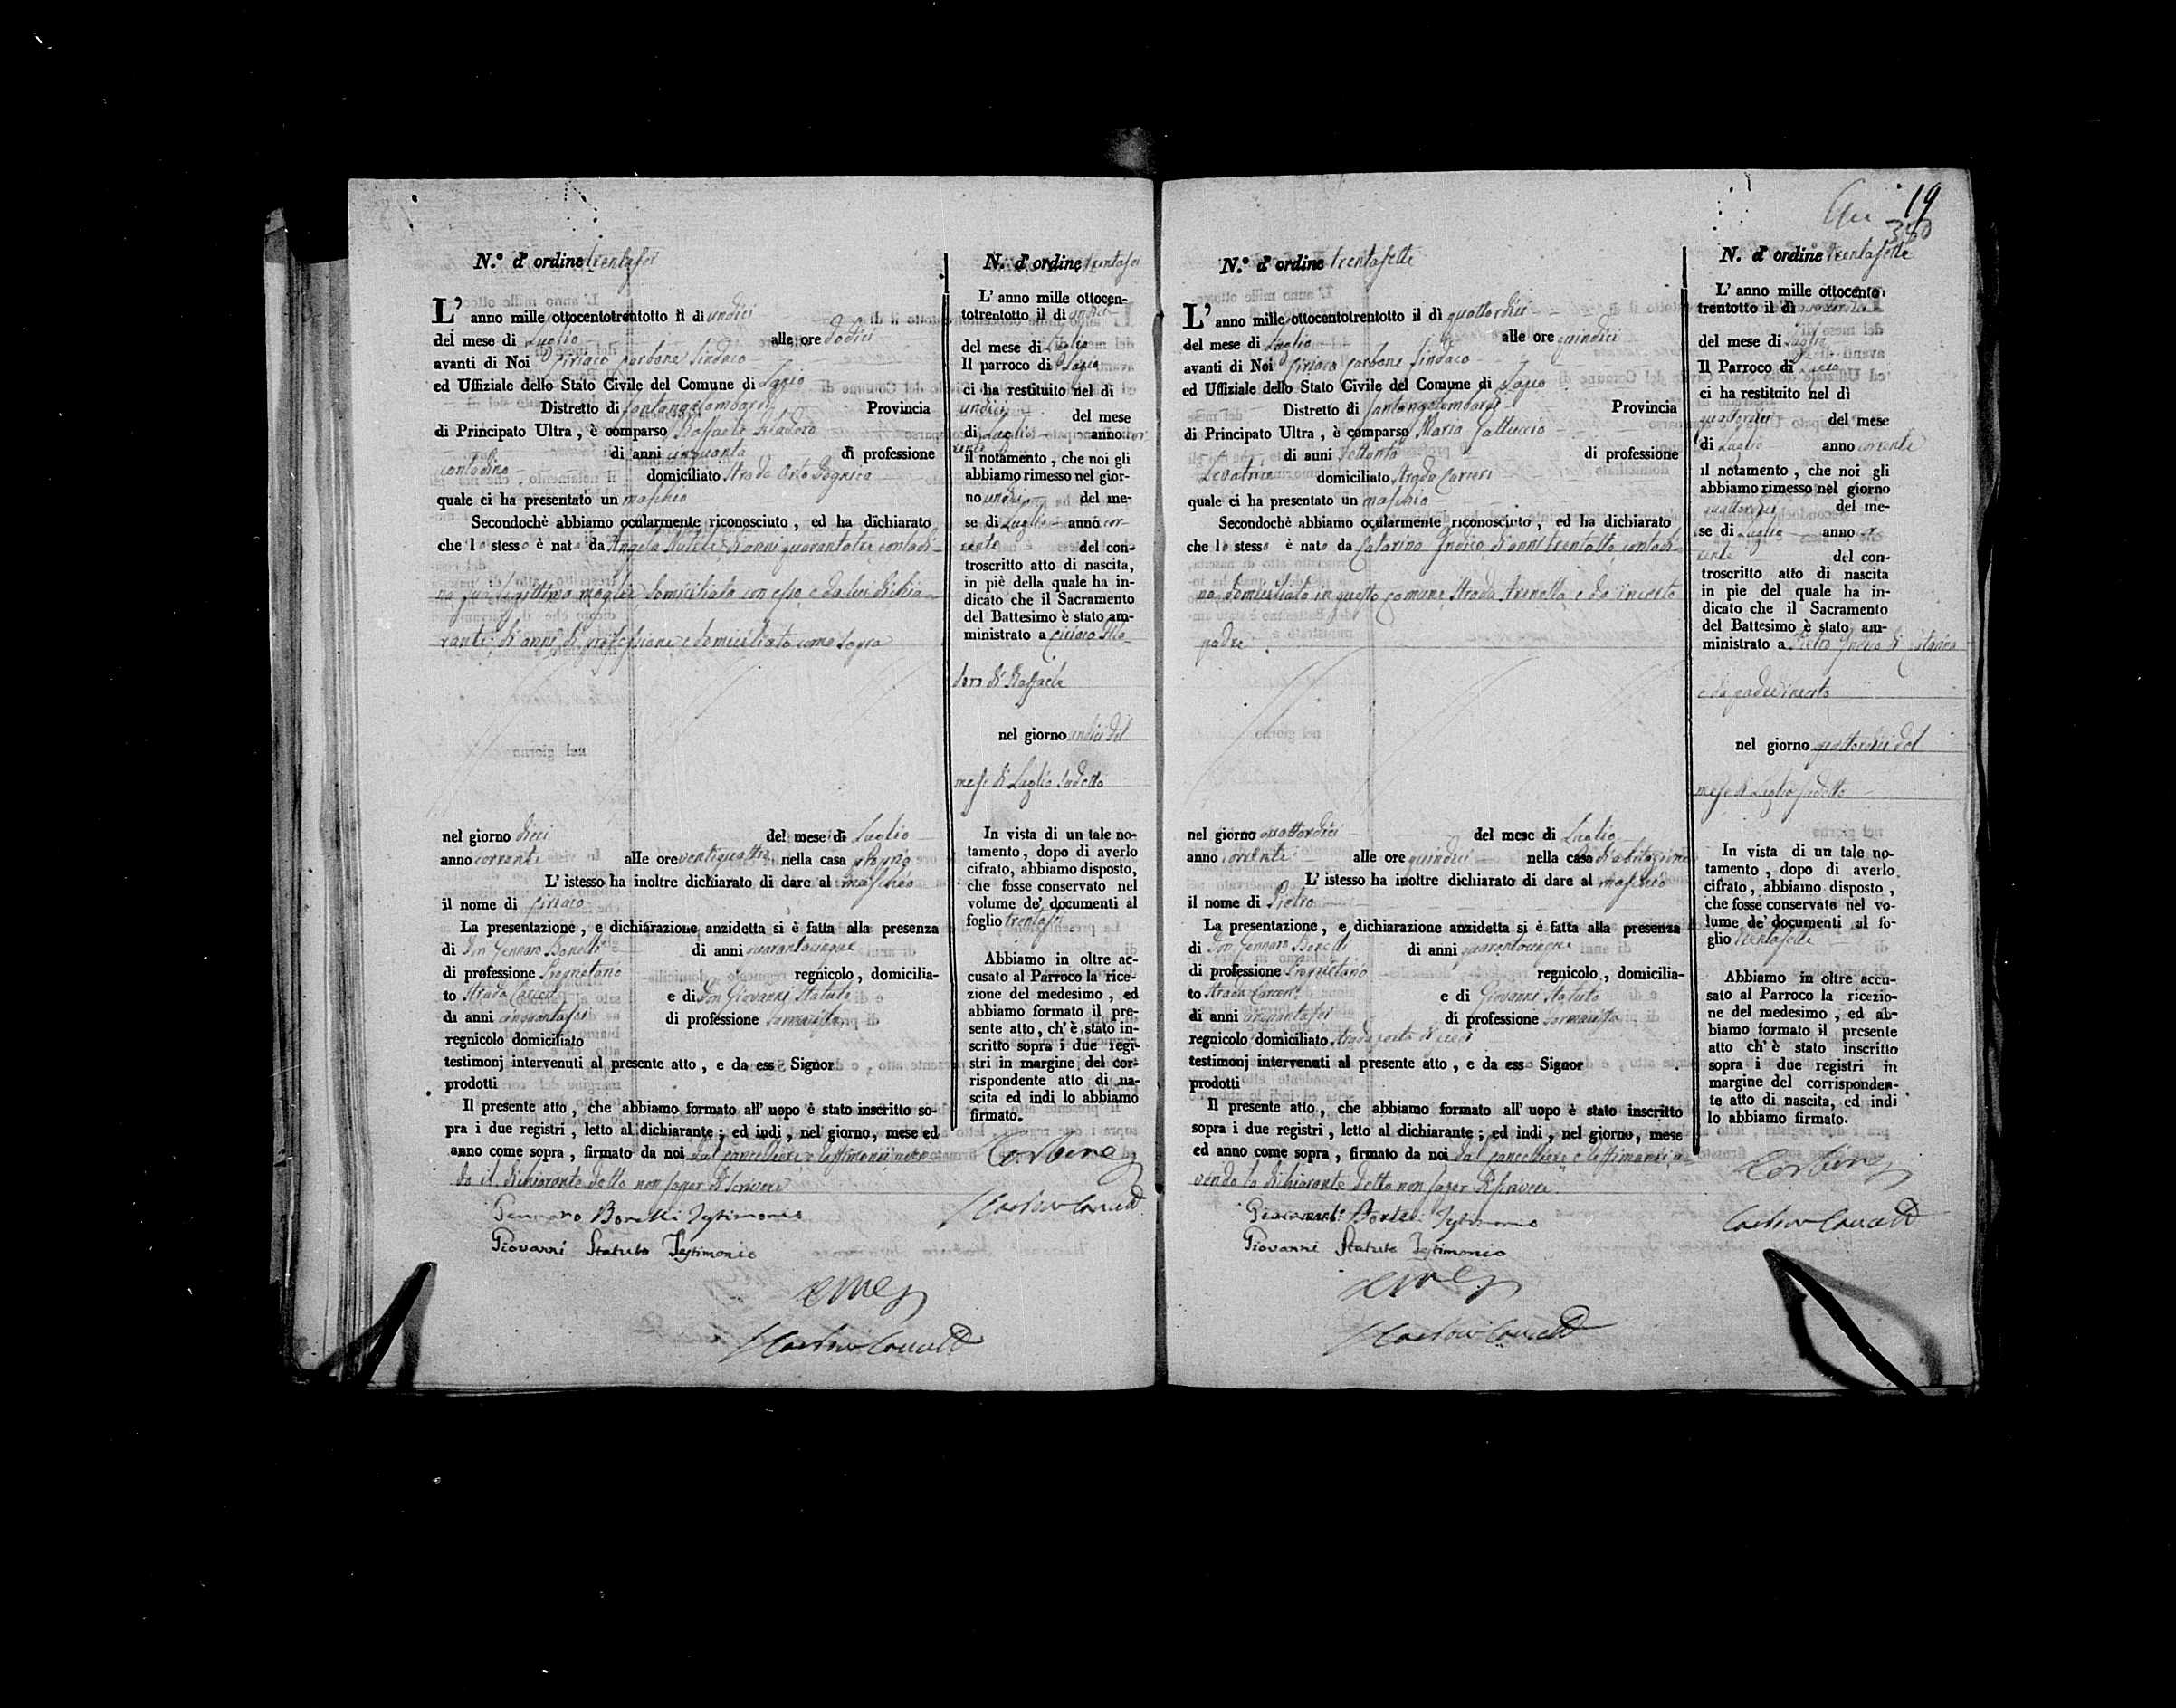 N.º d' ordine trentasei
L' anno mille ottocentotrentotto il dì undici
del mese di Luglio alle ore dodici
avanti di Noi Ciriaco Corbone Sindaco
ed Uffiziale dello Stato Civile del Comune di
Distretto di Santangelombardi Provincia
di Principato Ultra, è comparso Raffaele
di anni cinquanta di professione
contadino domiciliato Strada Orto
quale ci ha presentato un maschio
Secondochè abbiamo ocularmente riconosciuto, ed ha dichiarato
che lo stesso è nato da Angela di anni quarantatre contadi-
na sua legittima moglie domiciliata con esso e da lui dichia-
rante di anni di professione e domiciliato come sopra
nel giorno dieci del mese di Luglio
anno corrente alle ore ventiquattro nella casa propria
L' istesso ha inoltre dichiarato di dare al maschio
il nome di Ciriaco
La presentazione, e dichiarazione anzidetta si è fatta alla presenza
di Don Gennaro Borelli di anni quarantacinque
di professione Proprietario regnicolo, domicilia-
to Strada e di Don Giovanni Statuto
di anni cinquantasei di professione
regnicolo domiciliato
testimonj intervenuti al presente atto, e da ess Signor
prodotti
Il presente atto, che abbiamo formato all' uopo è stato inscritto so-
pra i due registri, letto al dichiarante; ed indi, nel giorno, mese ed
anno come sopra, firmato da noi dal cancelliere e testimonii aven-
do il dichiarante detto non saper di scrivere
Gennaro Borelli Testimonio
Giovanni Statuto Testimonio
N. d' ordine trentasei
L' anno mille ottocen-
totrentotto il dì undici
del mese di Luglio
Il parroco di
ci ha restituito nel dì
undici del mese
di Luglio anno cor-
rente
il notamento, che noi gli
abbiamo rimesso nel gior-
no undici del me-
se di Luglio anno cor-
rente del con-
troscritto atto di nascita,
in piè della quale ha in-
dicato che il Sacramento
del Battesimo è stato am-
ministrato a Ciriaco
di Raffaele
nel giorno undici del
mese di Luglio sudetto
In vista di un tale no-
tamento, dopo di averlo
cifrato, abbiamo disposto,
che fosse conservato nel
volume de' documenti al
foglio trentasei
Abbiamo in oltre ac-
cusato al Parroco la rice-
zione del medesimo, ed
abbiamo formato il pre-
sente atto, ch' è stato in-
scritto sopra i due regi-
stri in margine del cor-
rispondente atto di na-
scita ed indi lo abbiamo
firmato.
Corbone
19
340
N.º d' ordine trentasette
L' anno mille ottocentotrentotto il dì quattordici
del mese di Luglio alle ore quindici
avanti di Noi Ciriaco Corbone Sindaco
ed Uffiziale dello Stato Civile del Comune di
Distretto di Santangelombardi Provincia
di Principato Ultra, è comparso Maria Galluccio
di anni settanta di professione
Levatrice domiciliato Strada
quale ci ha presentato un maschio
Secondochè abbiamo ocularmente riconosciuto, ed ha dichiarato
che lo stesso è nato da Catarina di anni trentotto contadi-
na domiciliata in questo comune Strada e da incerto
padre
nel giorno quattordici del mese di Luglio
anno corrente alle ore quindici nella casa di abitazione
L' istesso ha inoltre dichiarato di dare al maschio
il nome di Pietro
La presentazione, e dichiarazione anzidetta si è fatta alla presenza
di Don Gennaro Borelli di anni quarantacinque
di professione Proprietario regnicolo, domicilia-
to Strada e di Giovanni Statuto
di anni cinquantasei di professione
regnicolo domiciliato Strada
testimonj intervenuti al presente atto, e da ess Signor
prodotti
Il presente atto, che abbiamo formato all' uopo è stato inscritto
sopra i due registri, letto al dichiarante; ed indi, nel giorno, mese
ed anno come sopra, firmato da noi dal cancelliere e testimonii a-
vendo la dichiarante detto non saper di scrivere
Testimonio
Giovanni Statuto Testimonio
N. d' ordine trentasette
L' anno mille ottocento
trentotto il dì quattordici
del mese di Luglio
Il Parroco di
ci ha restituito nel dì
quattordici del mese
di Luglio anno corrente
il notamento, che noi gli
abbiamo rimesso nel giorno
quattordici del me-
se di Luglio anno cor-
rente del con-
troscritto atto di nascita
in pie del quale ha in-
dicato che il Sacramento
del Battesimo è stato am-
ministrato a Pietro di Catarina
e da padre incerto
nel giorno quattordici del
mese di Luglio sudetto
In vista di un tale no-
tamento, dopo di averlo
cifrato, abbiamo disposto,
che fosse conservato nel vo-
lume de' documenti al fo-
glio trentasette
Abbiamo in oltre accu-
sato al Parroco la ricezio-
ne del medesimo, ed ab-
biamo formato il presente
atto ch' è stato inscritto
sopra i due registri in
margine del corrisponden-
te atto di nascita, ed indi
lo abbiamo firmato.
Corbone